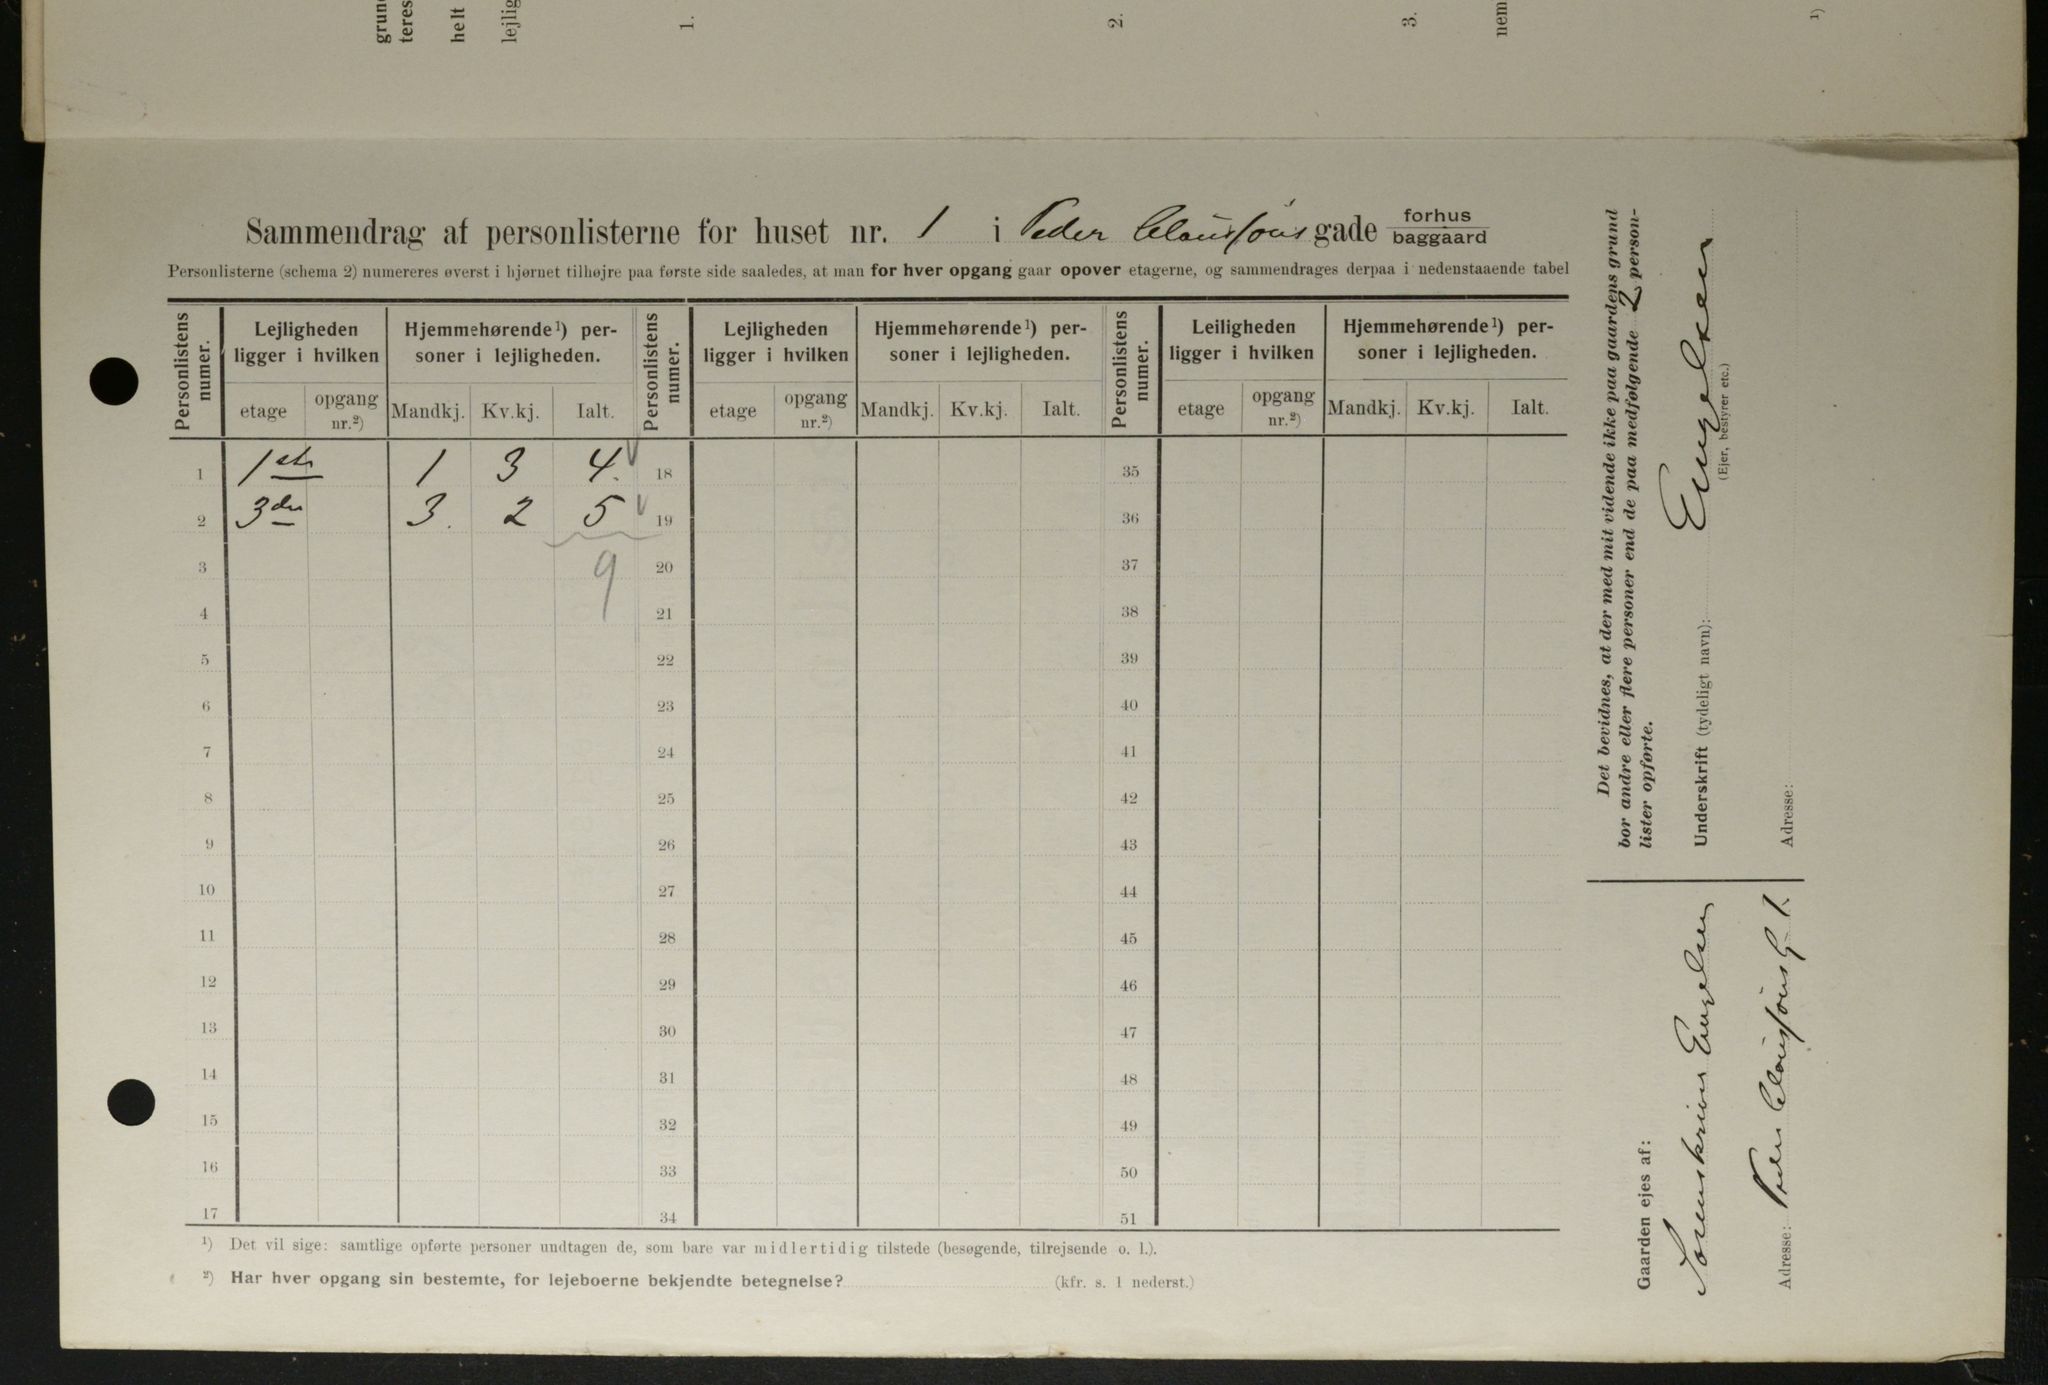 grun
teres
helt
lejlig
1.
2.
3.
nem
1)
Sammendrag af personlisterne for huset nr. 1 i Peder Claussøns gade forhus
baggaard
Personlisterne (schema 2) numereres øverst i hjørnet tilhøjre paa første side saaledes, at man for hver opgang gaar opover etagerne, og sammendrages derpaa i nedenstaaende tabel
Personlistens numer. Lejligheden ligger i hvilken Hjemmehørende 1) personer i lejligheden. Personlistens numer. Lejligheden ligger i hvilken Hjemmehørende 1) personer i lejligheden. Personlistens numer. Leiligheden ligger i hvilken Hjemmehørende 1) personer i lejligheden.
etage opgang nr. 2) Mandkj. Kv.kj. Ialt. etage opgang nr. 2) Mandkj. Kv.kj. Ialt. etage opgang nr. 2) Mandkj. Kv.kj. Ialt.
1 1ste 1 3 4. 18 35
2 3die 3. 2 5 19 36
3 9 20 37
4 21 38
5 22 39
6 23 40
7 24 41
8 25 42
9 26 43
10 27 44
11 28 45
12 29 46
13 30 47
14 31 48
15 32 49
16 33 50
17 34 51
1) Det vil sige: samtlige opførte personer undtagen de, som bare var midlertidig tilstede (besøgende, tilrejsende o. l.).
2) Har hver opgang sin bestemte, for lejeboerne bekjendte betegnelse? (kfr. s. 1 nederst.)
Det bevidnes, at der med mit vidende ikke paa gaardens grund
bor andre eller flere personer end de paa medfølgende 2 person-
lister opførte.
Underskrift (tydeligt navn): Engelsen
(Ejer, bestyrer etc.)
Adresse:
Gaarden ejes af:
Sorenskriver Engelsen
Adresse: Peder Claussøns G 1.